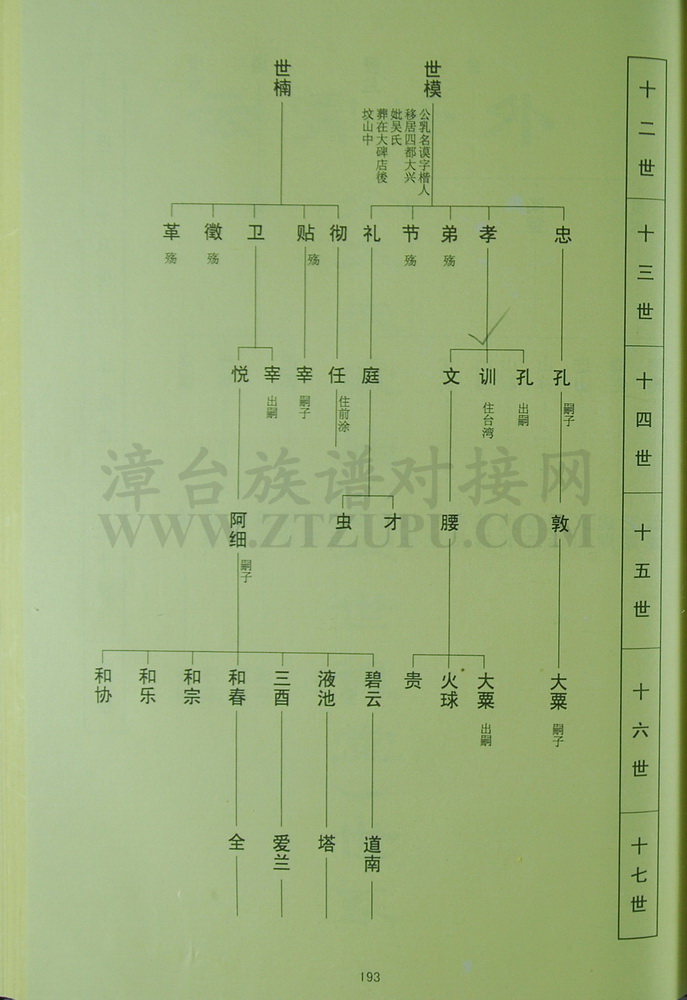 十二世
十三世
十四世
十五世
十六世
十七世
世模
公乳名谟字楷人
移居四都大兴
妣吴氏
葬在大碑店後
坟山中
世楠
忠
孝
弟
殇
节
殇
礼
彻
贴
殇
卫
徵
殇
革
殇
孔
嗣子
孔
出嗣
训
住台湾
文
庭
任
住前涂
宰
嗣子
宰
出嗣
悦
敦
腰
才
虫
阿细
嗣子
大粟
嗣子
大粟
出嗣
火球
贵
碧云
液池
三酉
和春
和宗
和乐
和协
道南
塔
爱兰
全
漳台族谱对接网
WWW.ZTZUPU.COM
193